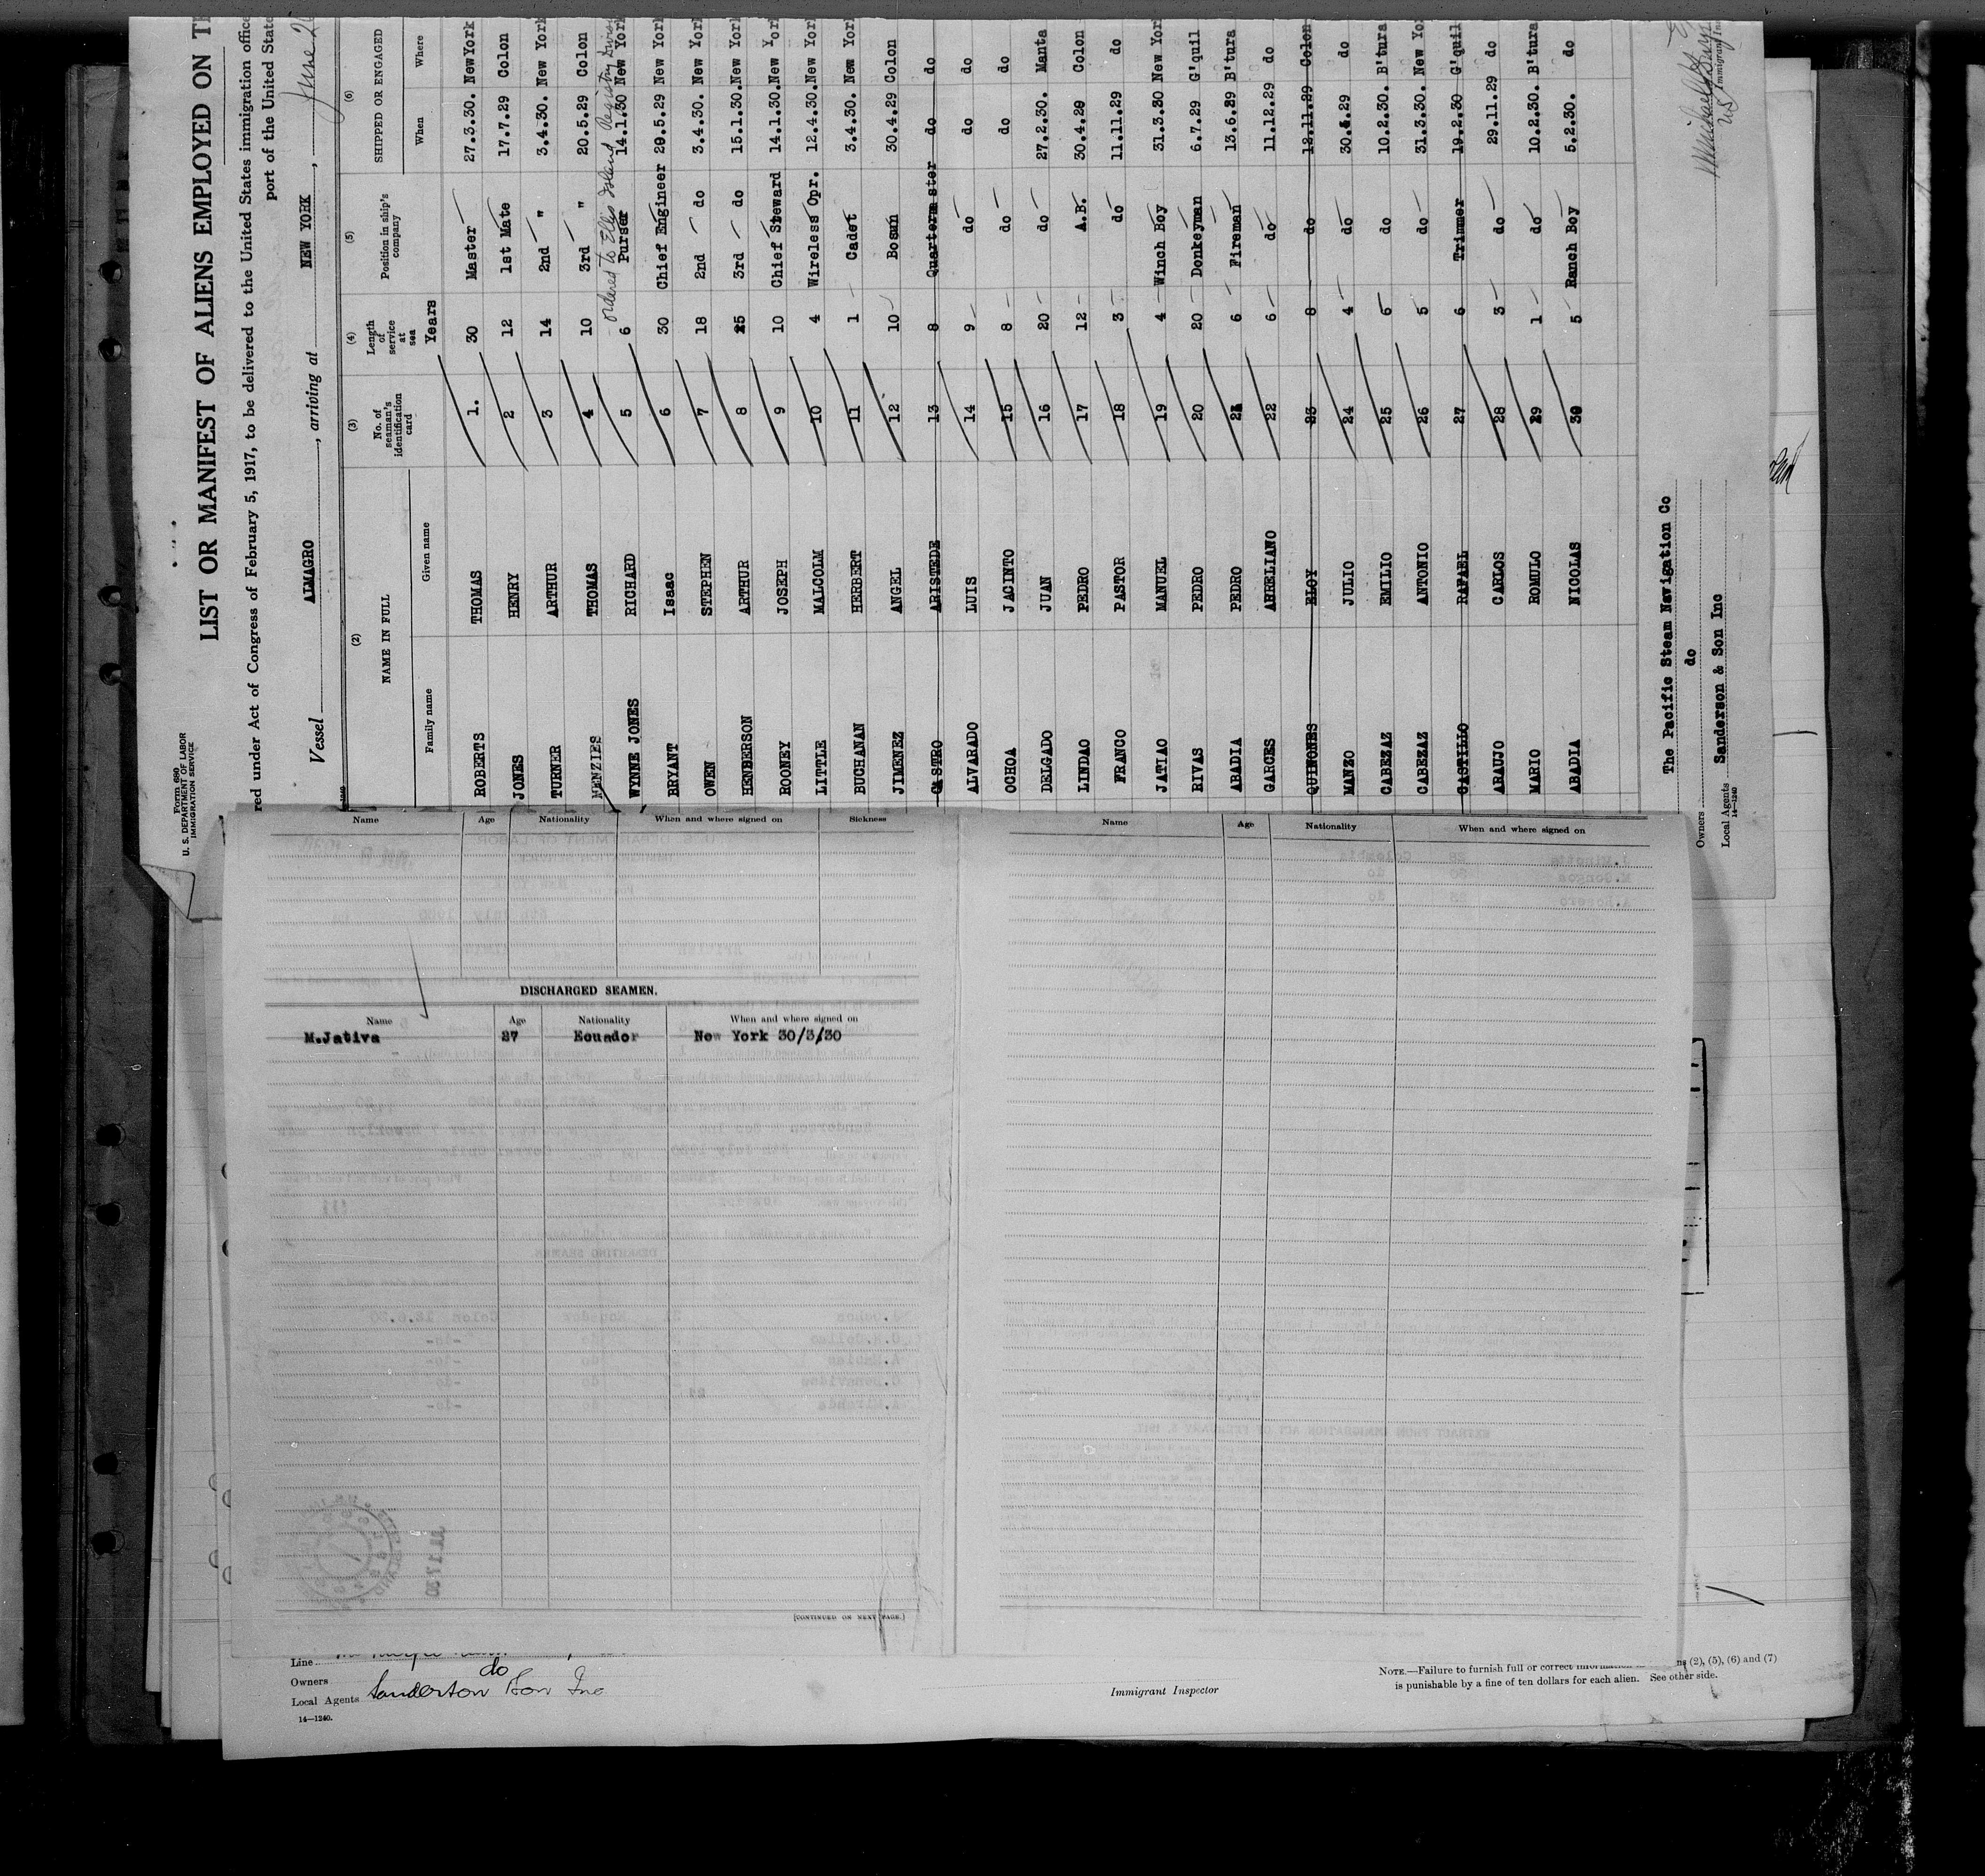 Form 680
U. S. DEPARTMENT OF LABOR
IMMIGRATION SERVICE
LIST OR MANIFEST OF ALIENS EMPLOYED ON
red under Act of Congress of February 5, 1917, to be delivered to the United States immigration
port of the United
Vessel ALMAGRO, arriving at NEW YORK, June
(2) (3) (4) (5) (6)
NAME IN FULL No. of seaman's identification card Length of service at sea Position in ship's company SHIPPED OR ENGAGED
Family name Given name Years When Where
ROBERTS THOMAS 1. 30 Master 27.3.30. New York
JONES HENRY 2 12 1st Mate 17.7.29 Colon
TURNER ARTHUR 3 14 2nd " 3.4.30. New York
MENZIES THOMAS 4 10 3rd " 20.5.29 Colon
ordered to Ellis Island Registry
WYNNE JONES RICHARD 5 6 Purser 14.1.30 New York
BRYANT Isaac 6 30 Chief Engineer 29.5.29 New York
OWEN STEPHEN 7 18 2nd do 3.4.30. New York
HENDERSON ARTHUR 8 25 3rd do 15.1.30. New York
ROONEY JOSEPH 9 10 Chief Steward 14.1.30. New York
LITTLE MALCOLM 10 4 Wireless Opr. 12.4.30. New York
BUCHANAN HERBERT 11 1 Cadet 3.4.30. New York
JIMENEZ ANGEL 12 10 Bosun 30.4.29 Colon
CASTRO ARISTEDE 13 8 Quartermaster do do
ALVARADO LUIS 14 9 do do do
OCHOA JACINTO 15 8 do do do
DELGADO JUAN 16 20 do 27.2.30. Manta
LINDAO PEDRO 17 12 A.B. 30.4.29 Colon
FRANCO PASTOR 18 3 do 11.11.29 do
JATIAO MANUEL 19 4 Winch Boy 31.3.30 New York
RIVAS PEDRO 20 20 Donkeyman 6.7.29 G'quil
ABADIA PEDRO 21 6 Fireman 13.6.29 B'tura
GARCES ABRELIANO 22 6 do 11.12.29 do
QUINONES ELOY 23 8 do 12.11.29 Colon
MANZO JULIO 24 4 do 30.4.29 do
CABEZAZ EMILIO 25 6 do 10.2.30. B'tura
CABEZAZ ANTONIO 26 5 do 31.3.30. New
CASTILLO RAFAEL 27 6 Trimmer 19.2.30 G'quil
ARAUJO CARLOS 28 3 do 29.11.29 do
MARIO ROMULO 29 1 do 10.2.30. B'tura
ABADIA NICOLAS 30 5 Ranch Boy 5.2.30. do
The Pacific Steam Navigation Co
Owners do
Local Agents Sanderson & Son Inc
14—1240
Immigrant
Name Age Nationality When and where signed on Sickness
DISCHARGED SEAMEN.
Name Age Nationality When and where signed on
M.Jativa 27 Ecuador New York 30/3/30
[CONTINUED ON NEXT PAGE.]
Name Age Nationality When and where signed on
Line
Owners do
Local Agents Sanderson Son Inc
14—1240.
Immigrant Inspector
NOTE.—Failure to furnish full or correct (2), (5), (6) and (7)
is punishable by a fine of ten dollars for each alien. See other side.